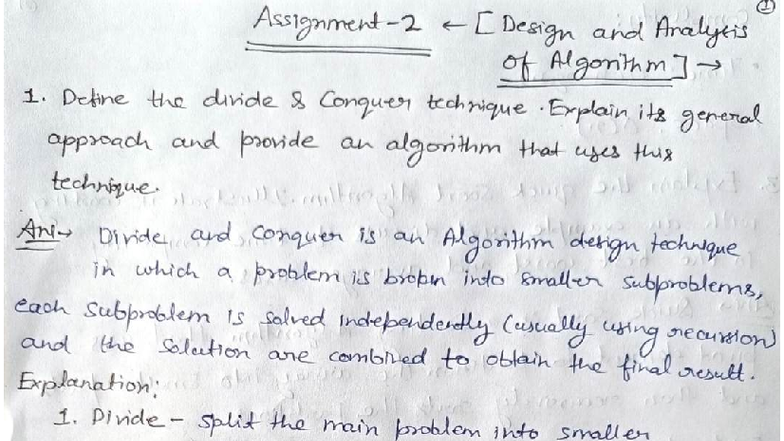 ①
Assignment-2 ← [Design and Analysis
of Algorithm] →
1. Define the divide & Conquer technique. Explain its general
approach and provide an algorithm that uses this
technique.
Ans→ Divide and Conquer is an Algorithm design technique
in which a problem is broken into smaller subproblems,
each subproblem is solved independently (usually using recursion)
and the solution are combined to obtain the final result.
Explanation:
1. Divide - split the main problem into smaller